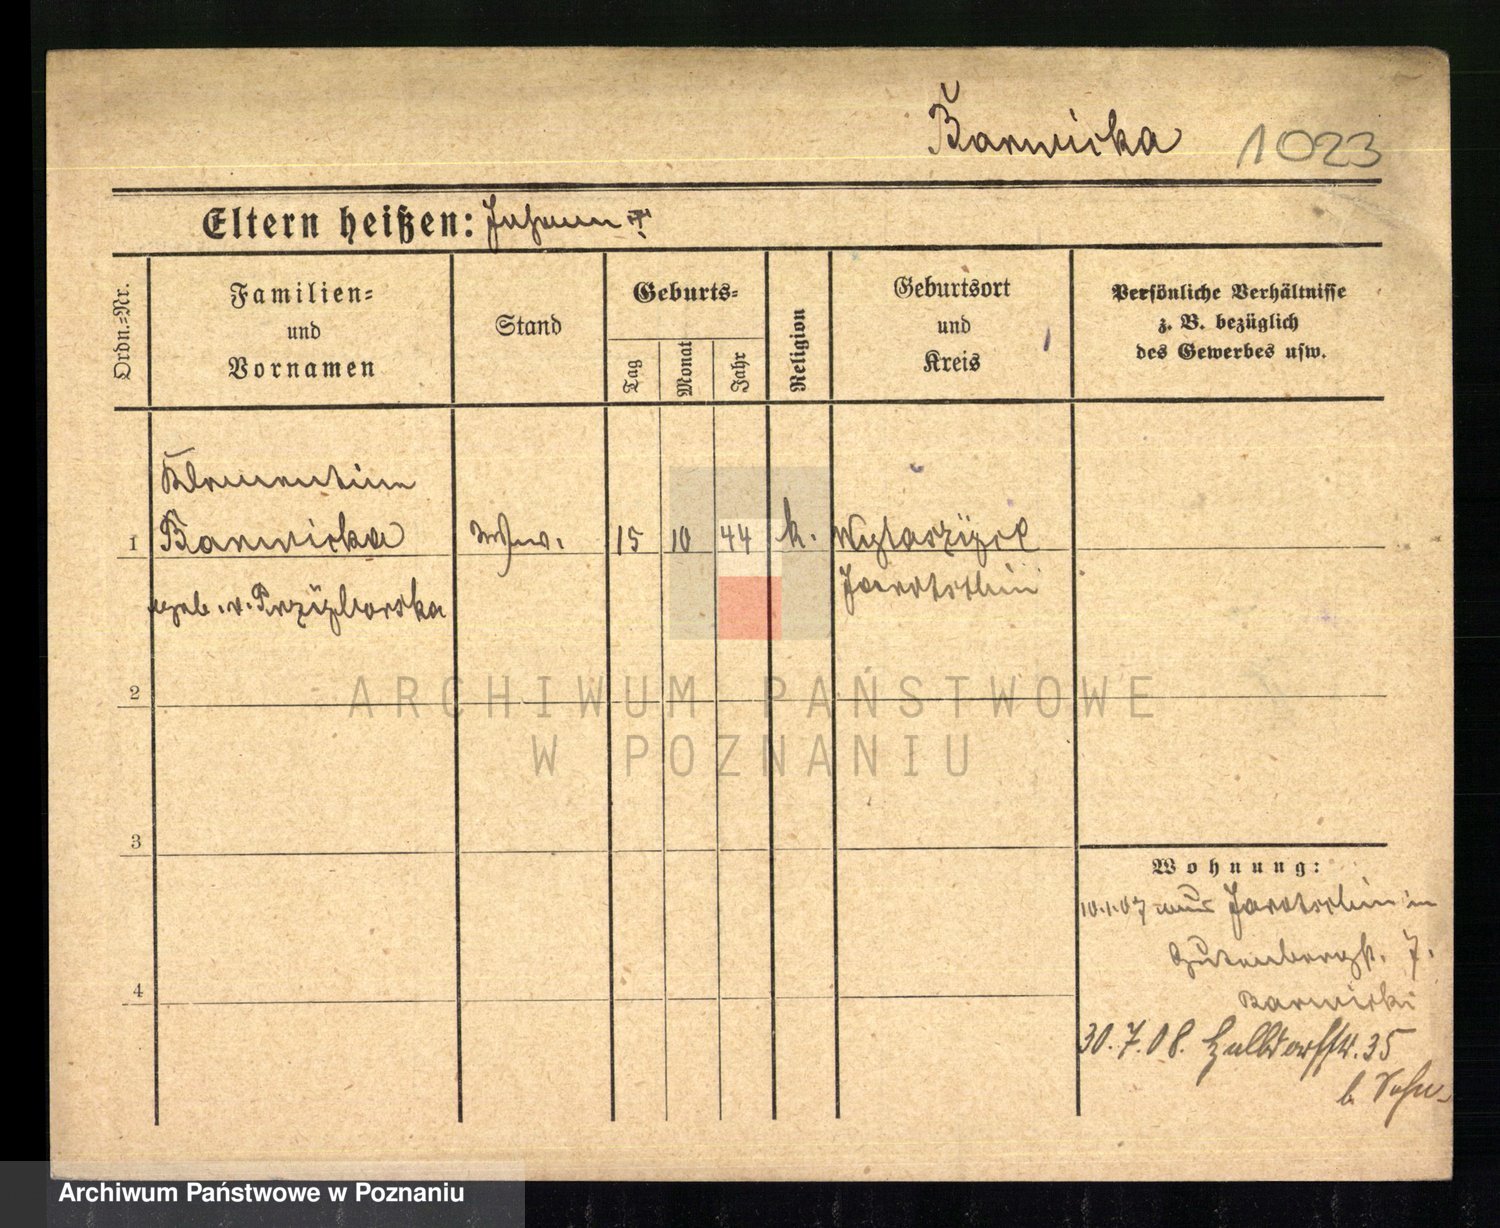 Barwicka 1023
Eltern heißen: Johann †
Ordn.-Nr.
Familien-
und
Vornamen
Stand
Geburts-
Tag
Monat
Jahr
Religion
Geburtsort
und
Kreis
Persönliche Verhältnisse
z. B. bezüglich
des Gewerbes usw.
Klementine
1 Barwicka Wwe. 15 10 44 k.
geb. v. Przyborska Jarotschin
2
ARCHIWUM PAŃSTWOWE
W POZNANIU
3
Wohnung:
10.1.07 aus Jarotschin in
Gutenbergst. 7.
Barwicki
4
30.7.08. 35
b. Sohn
Archiwum Państwowe w Poznaniu